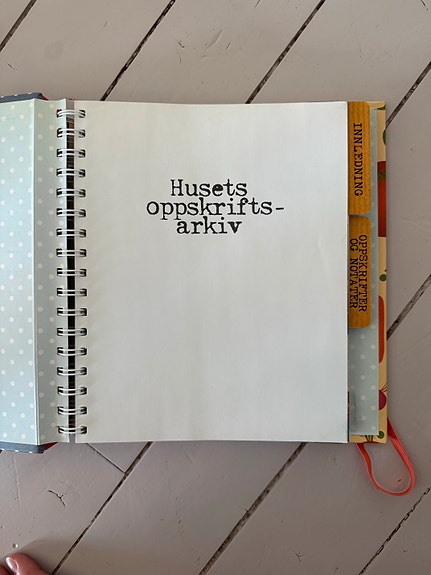 Husets
oppskrifts-
arkiv
INNLEDNING
OPPSKRIFTER
OG NOTATER